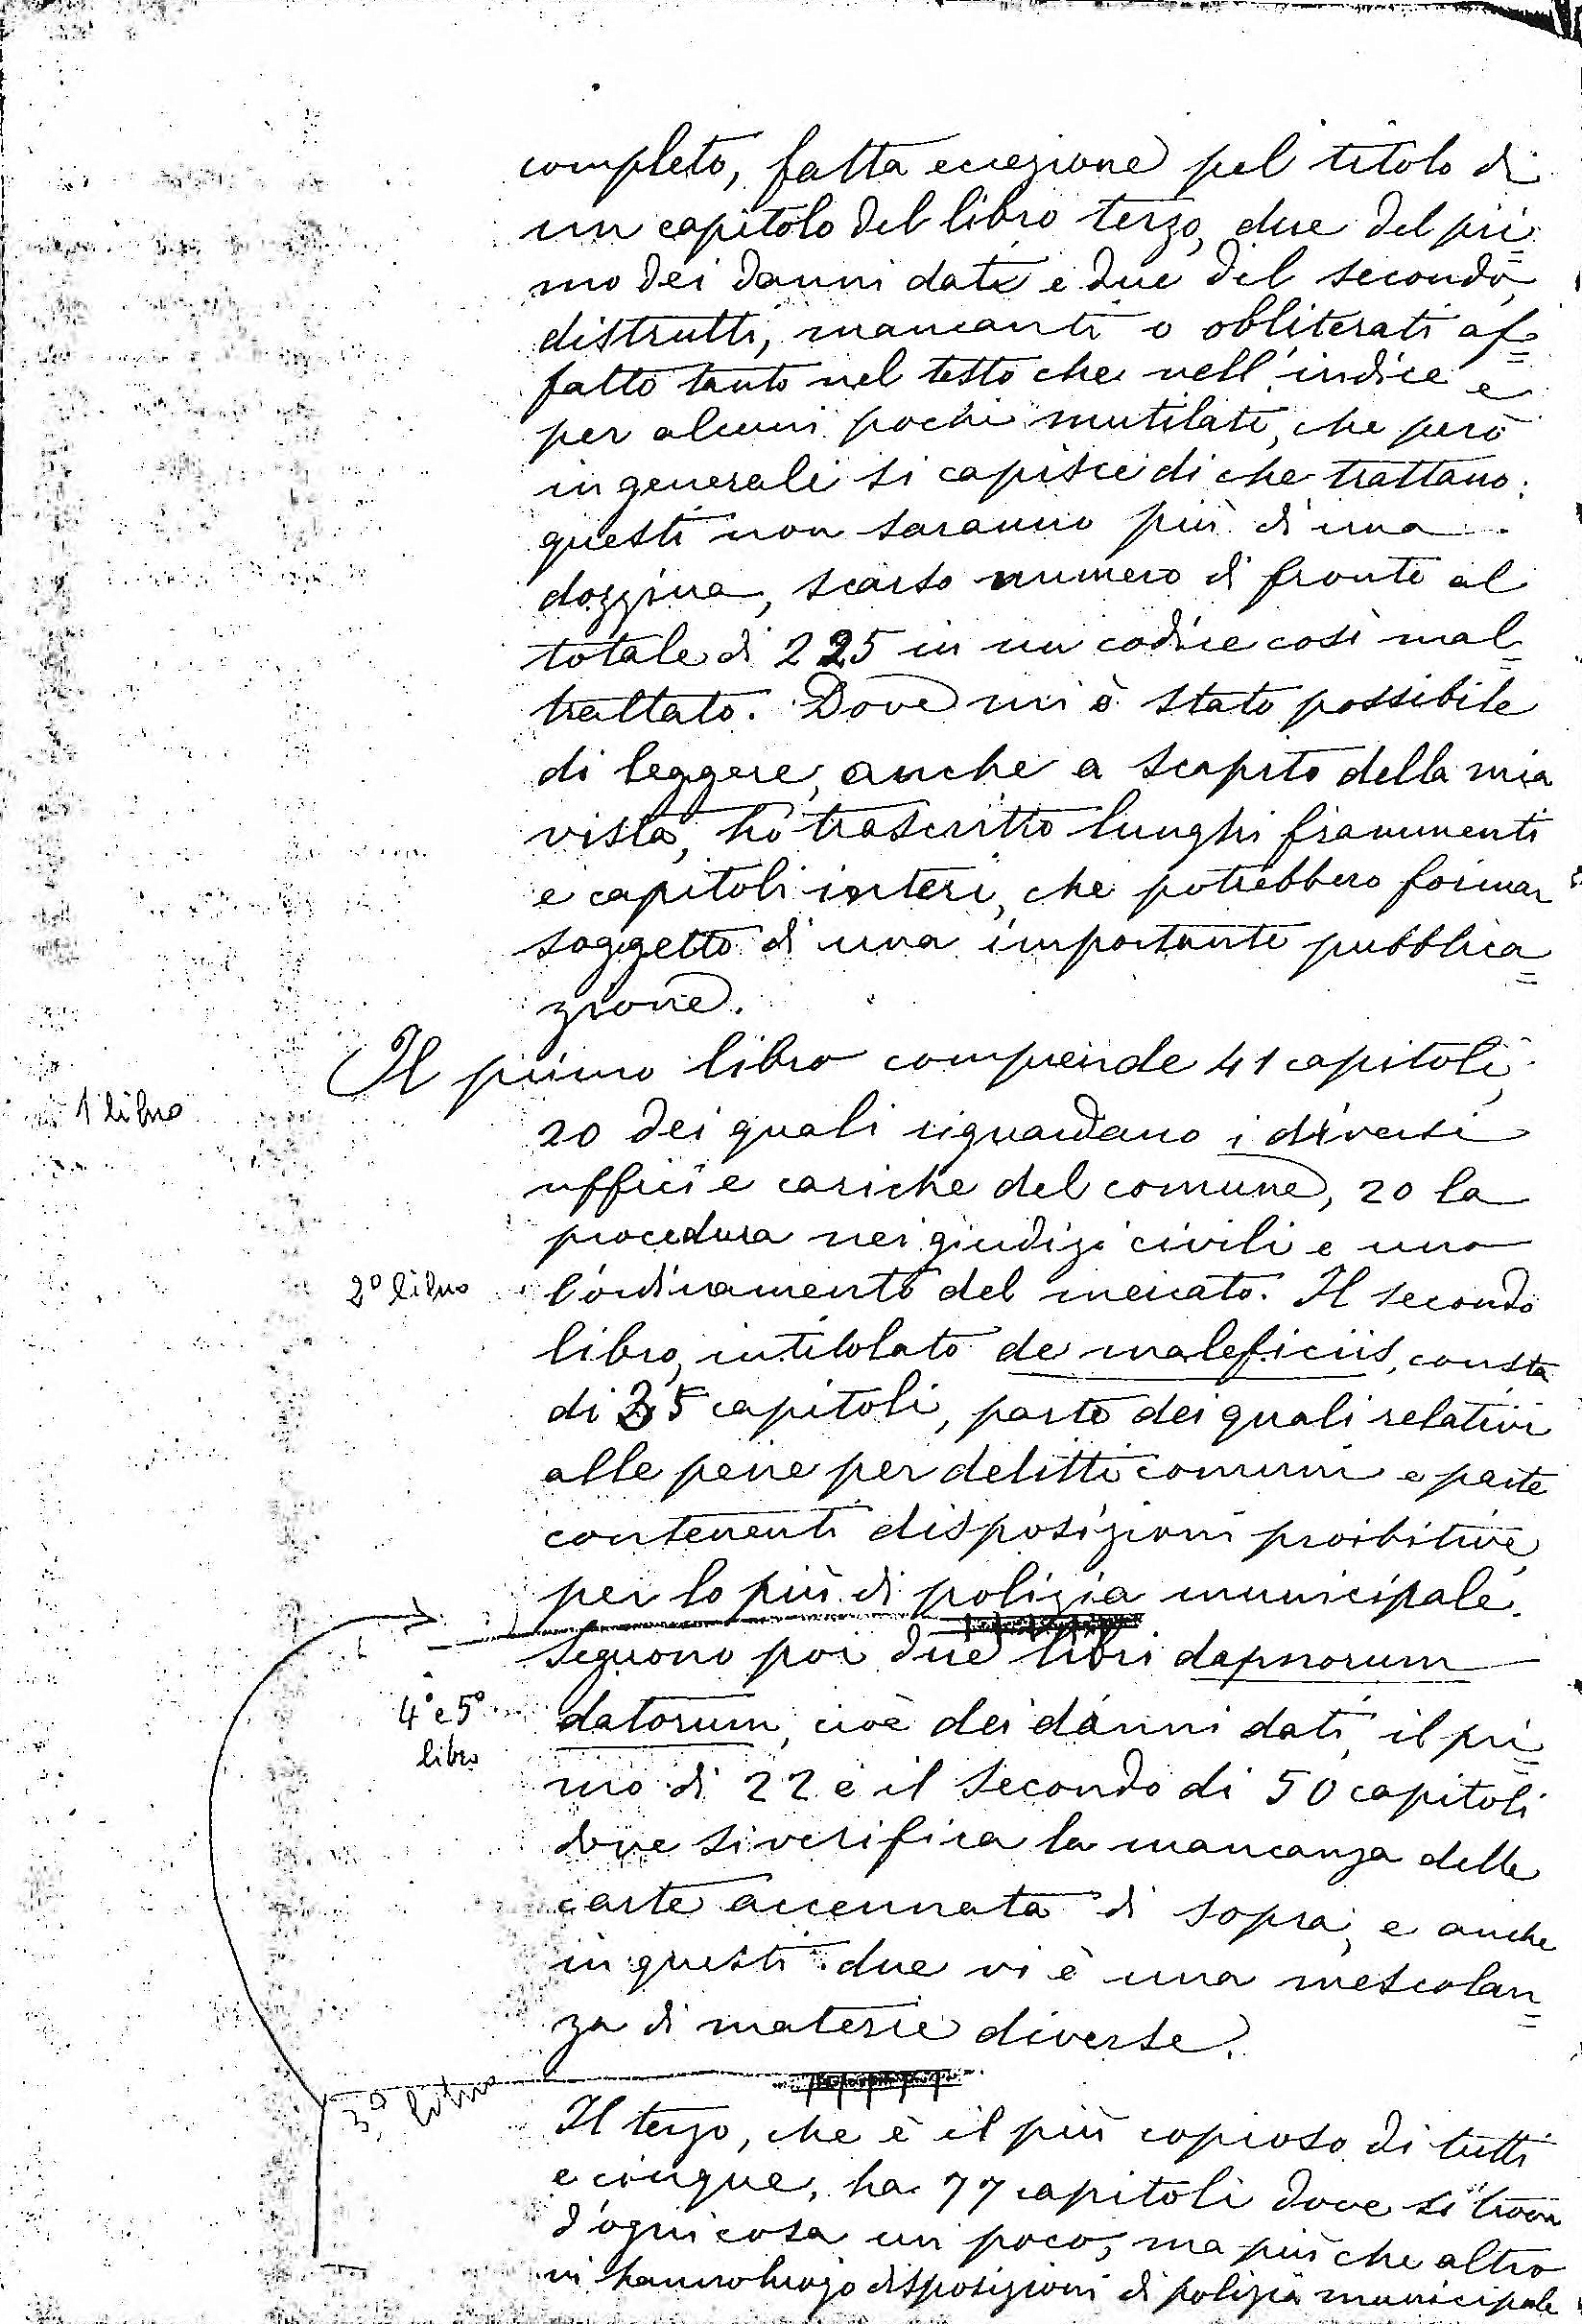 completo, fatta eccezione pel titolo di
un capitolo del libro terzo, due del pri=
mo dei danni dati e due del secondo,
distrutti, mancanti o obliterati af=
fatto tanto nel testo che nell'indice e
per alcuni pochi mutilati, che però
in generale si capisce di che trattano:
questi non saranno più di una
dozzina, scarso numero di fronte al
totale di 225 in un codice così mal=
trattato. Dove mi è stato possibile
di leggere, anche a scapito della mia
vista, ho trascritto lunghi frammenti
e capitoli interi, che potrebbero formar
soggetto di una importante pubblica=
zione.
Il primo libro comprende 41 capitoli,
1 libro
20 dei quali riguardano i diversi
uffici e cariche del comune, 20 la
procedura nei giudizi civili e uno
2º libro
l'ordinamento del mercato. Il secondo
libro, intitolato de maleficiis, consta
di 35 capitoli, parte dei quali relativi
alle pene per delitti comuni e parte
contenenti disposizioni proibitive,
per lo più di polizia municipale.
Seguono poi due libri dapnorum
4º e 5º
libro
datorum, cioè dei danni dati, il pri=
mo di 22 e il secondo di 50 capitoli
dove si verifica la mancanza delle
carte accennata di sopra, e anche
in questi due vi è una mescolan=
za di materie diverse.
3º libro
Il terzo, che è il più copioso di tutti
e cinque, ha 77 capitoli dove si trova
d'ogni cosa un poco, ma più che altro
vi hanno luogo disposizioni di polizia municipale